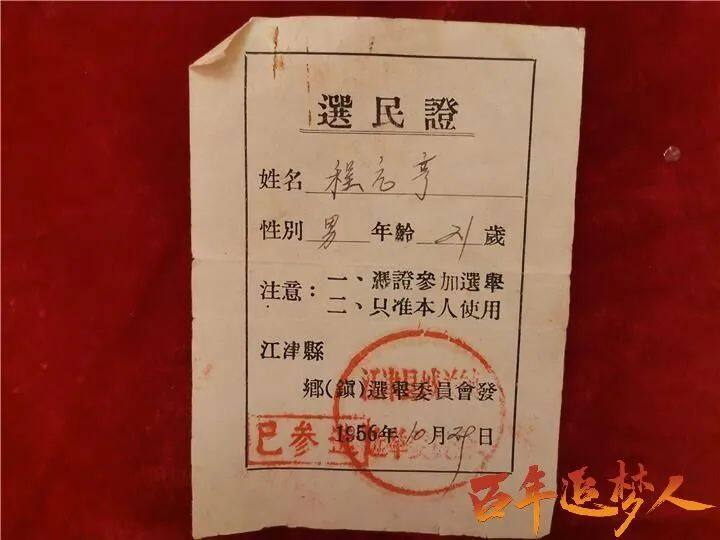 選民證
姓名 程元亨
性別 男 年齡 21 歲
注意：一、憑證參加選舉
二、只准本人使用
江津縣
鄉(鎮)選舉委員會發
1956年10月29日
已参选
江津县城关
百年追梦人